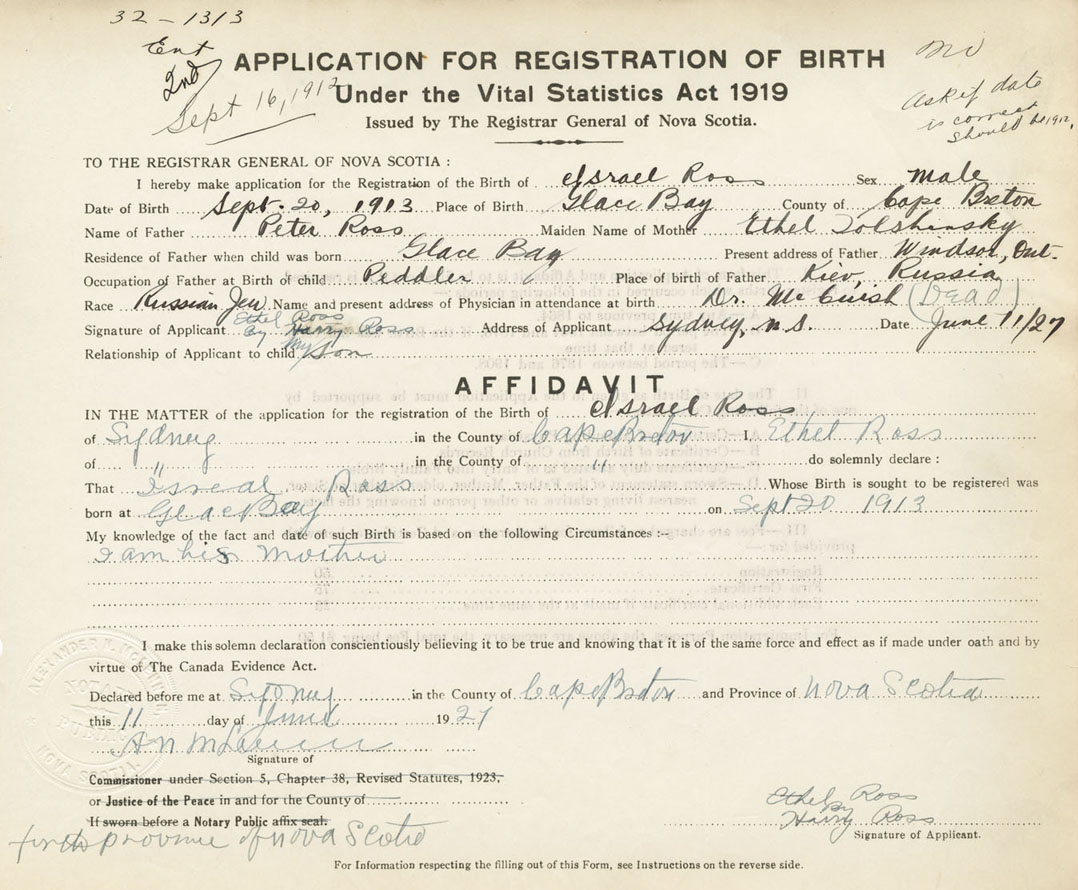 32 - 1313
Ent
2nd
Sept 16, 1912
no
Ask if date
is correct
should be 1912,
APPLICATION FOR REGISTRATION OF BIRTH
Under the Vital Statistics Act 1919
Issued by The Registrar General of Nova Scotia.
TO THE REGISTRAR GENERAL OF NOVA SCOTIA :
I hereby make application for the Registration of the Birth of Israel Ross Sex Male
Date of Birth Sept. 20, 1913 Place of Birth Glace Bay County of Cape Breton
Name of Father Peter Ross Maiden Name of Mother Ethel Tolshinsky
Residence of Father when child was born Glace Bay Present address of Father Windsor, Ont.
Occupation of Father at Birth of child Peddler Place of birth of Father Kiev, Russia
Race Russian Jew Name and present address of Physician in attendance at birth Dr. McCuish (Dead)
Signature of Applicant Ethel Ross By Harry Ross Address of Applicant Sydney, N.S. Date June 11/27
Relationship of Applicant to child My Son
AFFIDAVIT
IN THE MATTER of the application for the registration of the Birth of Israel Ross
of Sydney in the County of Cape Breton I, Ethel Ross
of " in the County of " do solemnly declare :
That Isreal Ross Whose Birth is sought to be registered was
born at Glace Bay on Sept 20 1913
My knowledge of the fact and date of such Birth is based on the following Circumstances :--
I am his Mother
I make this solemn declaration conscientiously believing it to be true and knowing that it is of the same force and effect as if made under oath and by
virtue of The Canada Evidence Act.
Declared before me at Sydney in the County of Cape Breton and Province of Nova Scotia
this 11 day of June 1927
Signature of
Commissioner under Section 5, Chapter 38, Revised Statutes, 1923,
or Justice of the Peace in and for the County of
If sworn before a Notary Public affix seal.
for the province of Nova Scotia
Ethel Ross
By
Harry Ross
Signature of Applicant.
For Information respecting the filling out of this Form, see Instructions on the reverse side.